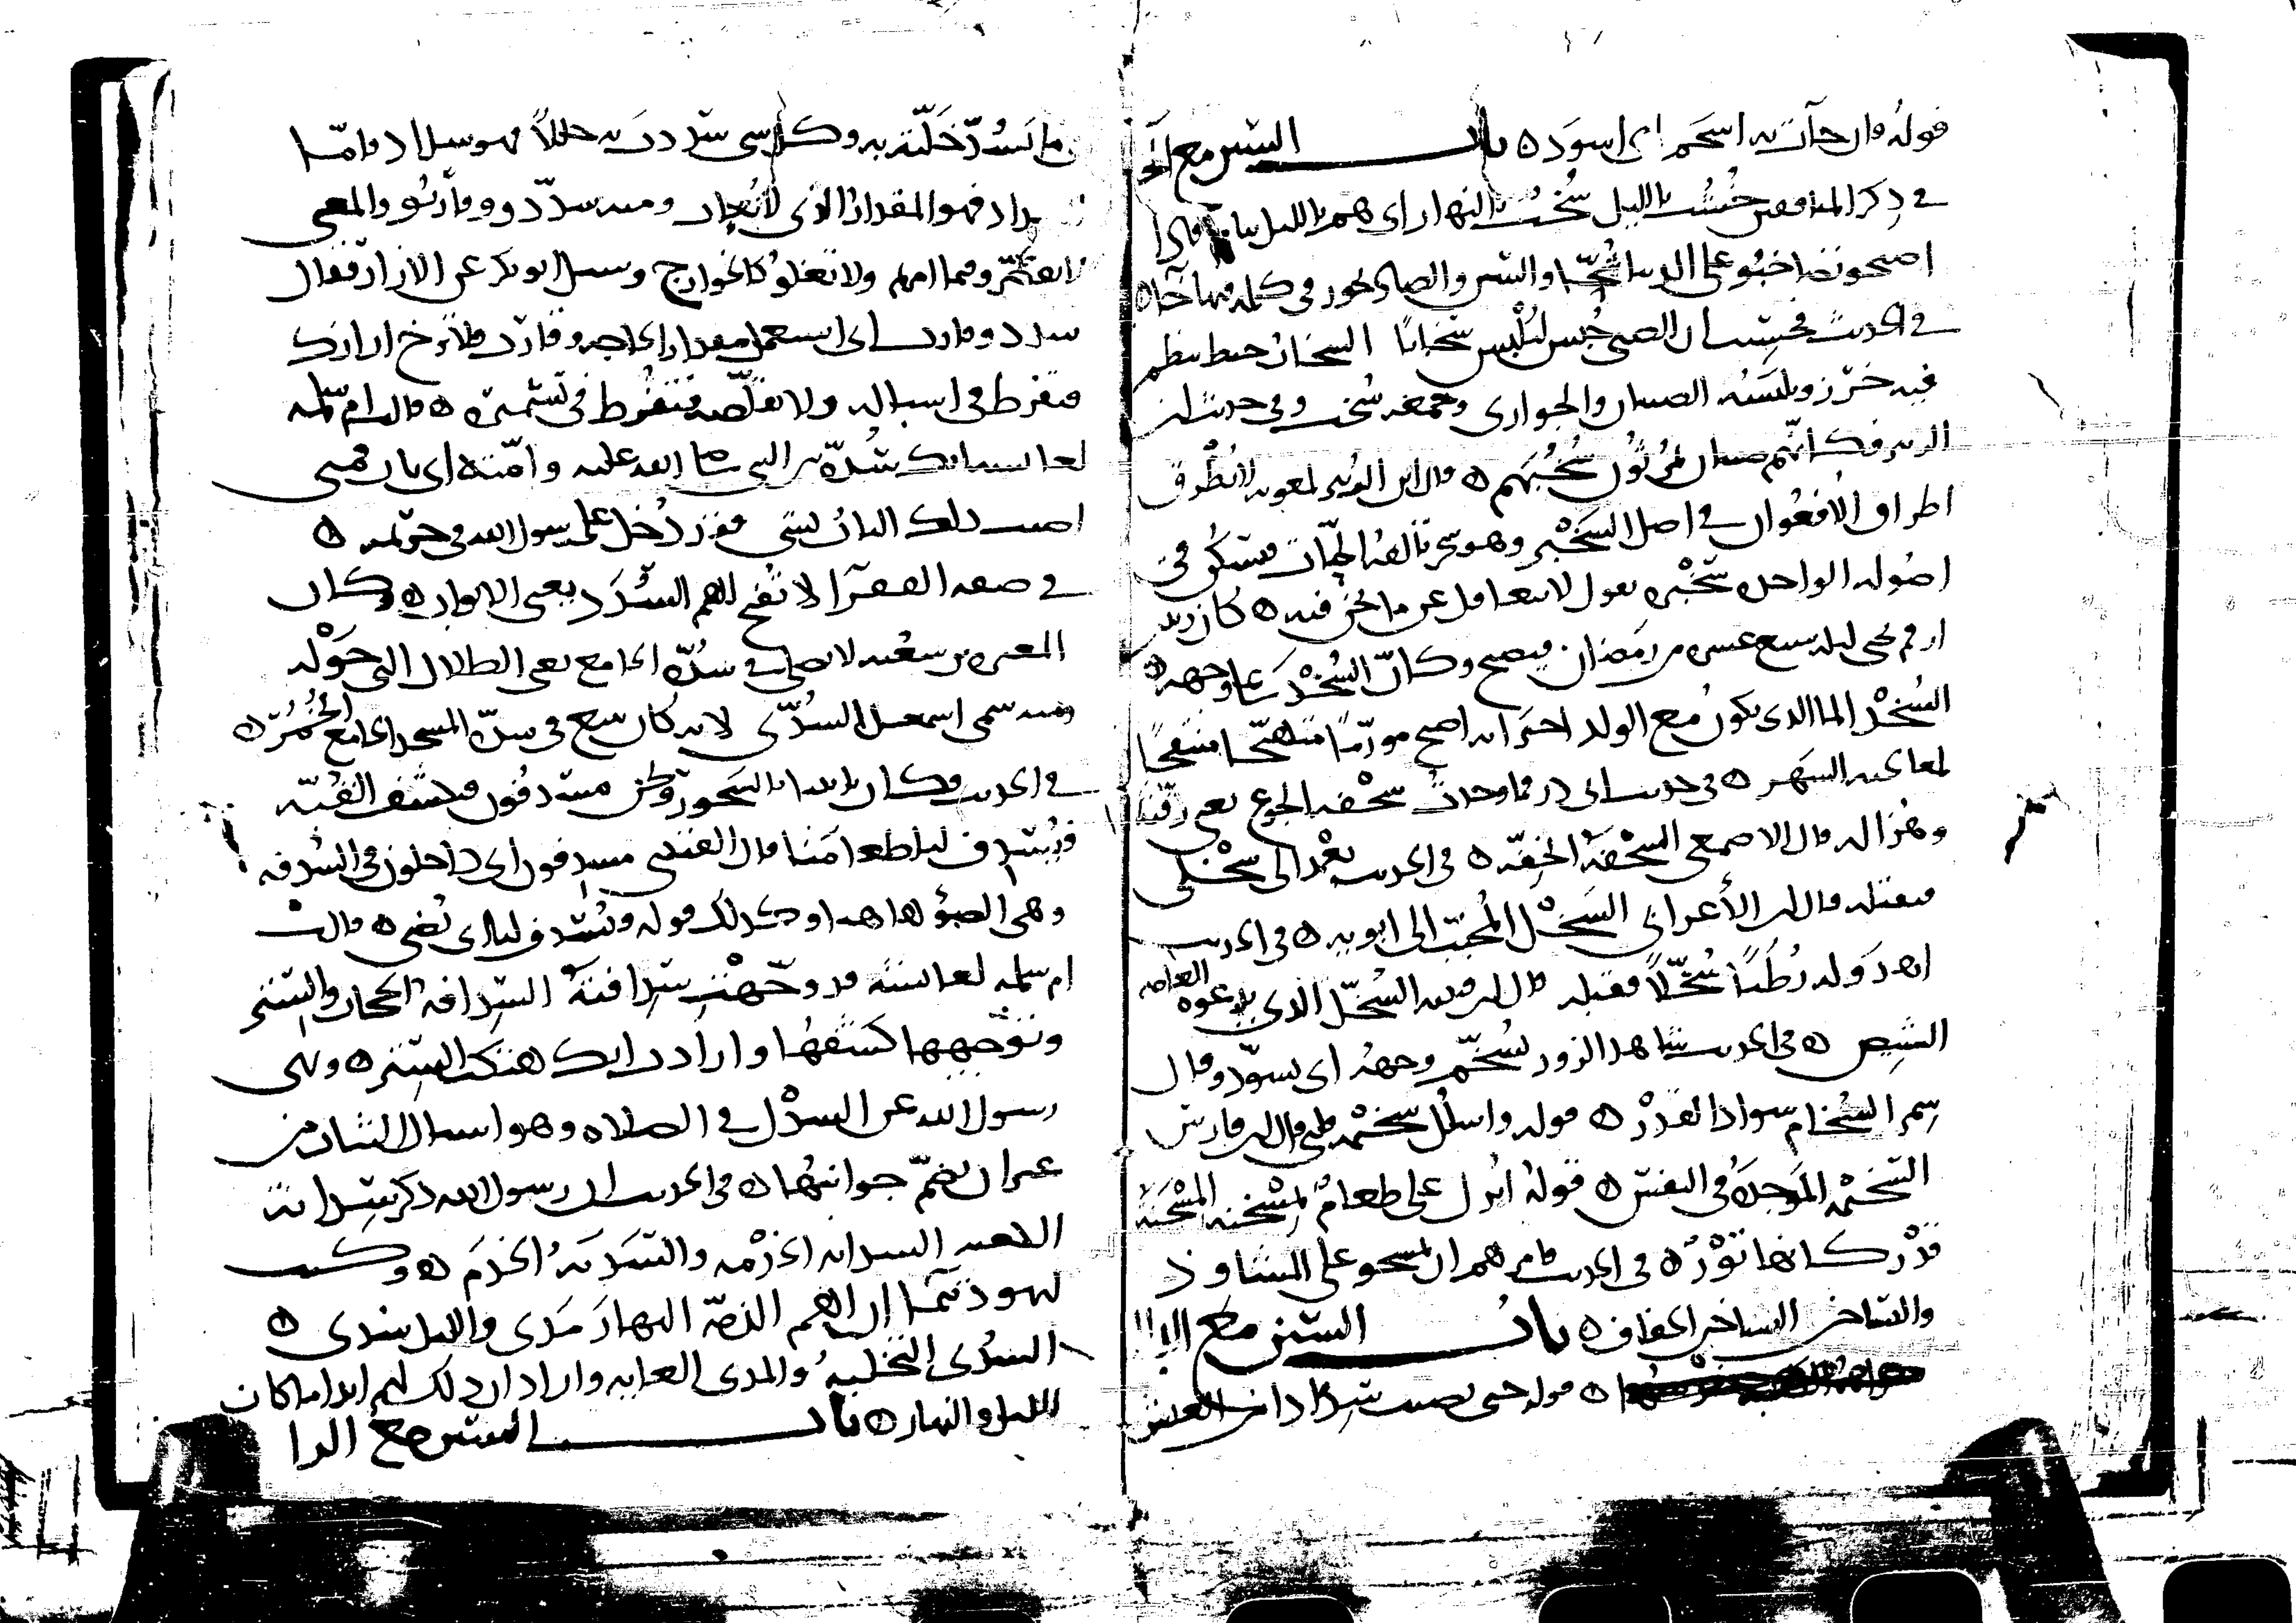 قوله وان جآت به اسحم اى اسود ه باب السين مع الخا
في ذكر المنافقين خشب بالليل سخب بالنهار اى هم بالليل نيام فاذا
اصبحوا تصاخبوا على الدنيا شحا والسين والصاد يجوز في كلمة فيها خآ ه
في الحديث فحبست ان الصبي حبس لتلبس سخابا السخاب خيط ينظم
فيه خرز ويلبسه الصبيان والجوارى وجمعه سخب وفي حديث ابن
الزبير فكانهم صبيان يمرثون سخبهم ه قال ابن الزبير لمعوية لا تطرق
اطراق الافعوان في اصل السخبر وهو شجر تالفه الحيات فتسكن في
اصوله الواحدة سخبرة يقول لا تتغافل عن ما نحن فيه ه كان زيد
ارقم يحى ليلة سبع عشرة من رمضان فيصبح وكان السخد على وجهه ه
السخد الما الذى يكون مع الولد اخبر انه اصبح مورما متهيجا منتفخا
لمعالجته السهر ه في حديث ابى ذر فما وجدت سخفة الجوع يعنى رقته
وهزاله قال الاصمعى السخفة الخفة ه في الحديث يعمد الى سخلى
فيقتله قال ابن الأعرابي السخل المحبب الى ابويه ه في الحديث
اهدوله رطبا سخلا فقبله قال ابن قتيبة السخل الذى يدعوه العامة
الشيص ه في الحديث شاهد الزور يسخم وجهه اى يسود وقال
شمر السخام سواد القدر ه قوله واسلل سخيمة قلبي قال ابن فارس
السخيمة الموجدة في النفس ه قوله انزل على طعام بمسخنة المسخنة
قدر كانها تور ه في الحديث فامرهم ان يمسحوا على المشاوذ
والتساخين التساخين الخفاف ه باب السين مع الدال
ه قوله حتى يصيب سدادا من العيش
ما تسد خلته به وكل شى سددت به خللا فهو سداد واما
السداد فهو المقدار الذى لا يعاب ومنه سددوا وقاربوا والمعنى
لا تقصروا فيما امرتم ولا تغلوا كالخوارج وسئل ابو بكر عن الازار فقال
سدد وقارب اى استعمل مقدار الحاجة وقارب فلا ترخ ازارك
فتفرط في اسباله ولا تقلصه فتفرط في تشميره ه قالت ام سلمة
لعائشة انك سدة بين النبي صلى الله عليه وامته اى باب فمتى
اصيب ذلك الباب بشى فقد دخل على رسول الله في حريمه ه
في صفة الفقرا لا تفتح لهم السدد يعنى الابواب ه وكان
المغيرة بن سعبه لا يصلى في سدة الجامع يعنى الظلال التى حوله
ومنه سمى اسمعيل السدى لانه كان يبيع في سدة المسجد الجامع الخمر ه
في الحديث وكان بلال ياتينا بالسحور ونحن مسدفون فيكشف القبة
فيسدف لنا طعامنا قال القتيبى مسدفون اى داخلون في السدفة
وهى الضوء هاهنا وكذلك قوله ويسدف لنا اى يضى ه قالت
ام سلمة لعائشة قد وجهت سدافته السدافة الحجاب والستر
وتوجيهها كشفها وارادت انك هتكت الستر ه ونهى
رسول الله عن السدل في الصلاه وهو اسبال الثياب من
غير ان يضم جوانبها ه في الحديث ان رسول الله ذكر سدانة
الكعبة السدانة الخدمة والسدنة الخدم ه وكتب
ليهود تيما ان لهم الذمة النهار مدى والليل سدى ه
السدى التخلية والمدى الغاية واراد ان ذلك لهم ابدا ما كان
الليل والنهار ه باب السين مع الرا